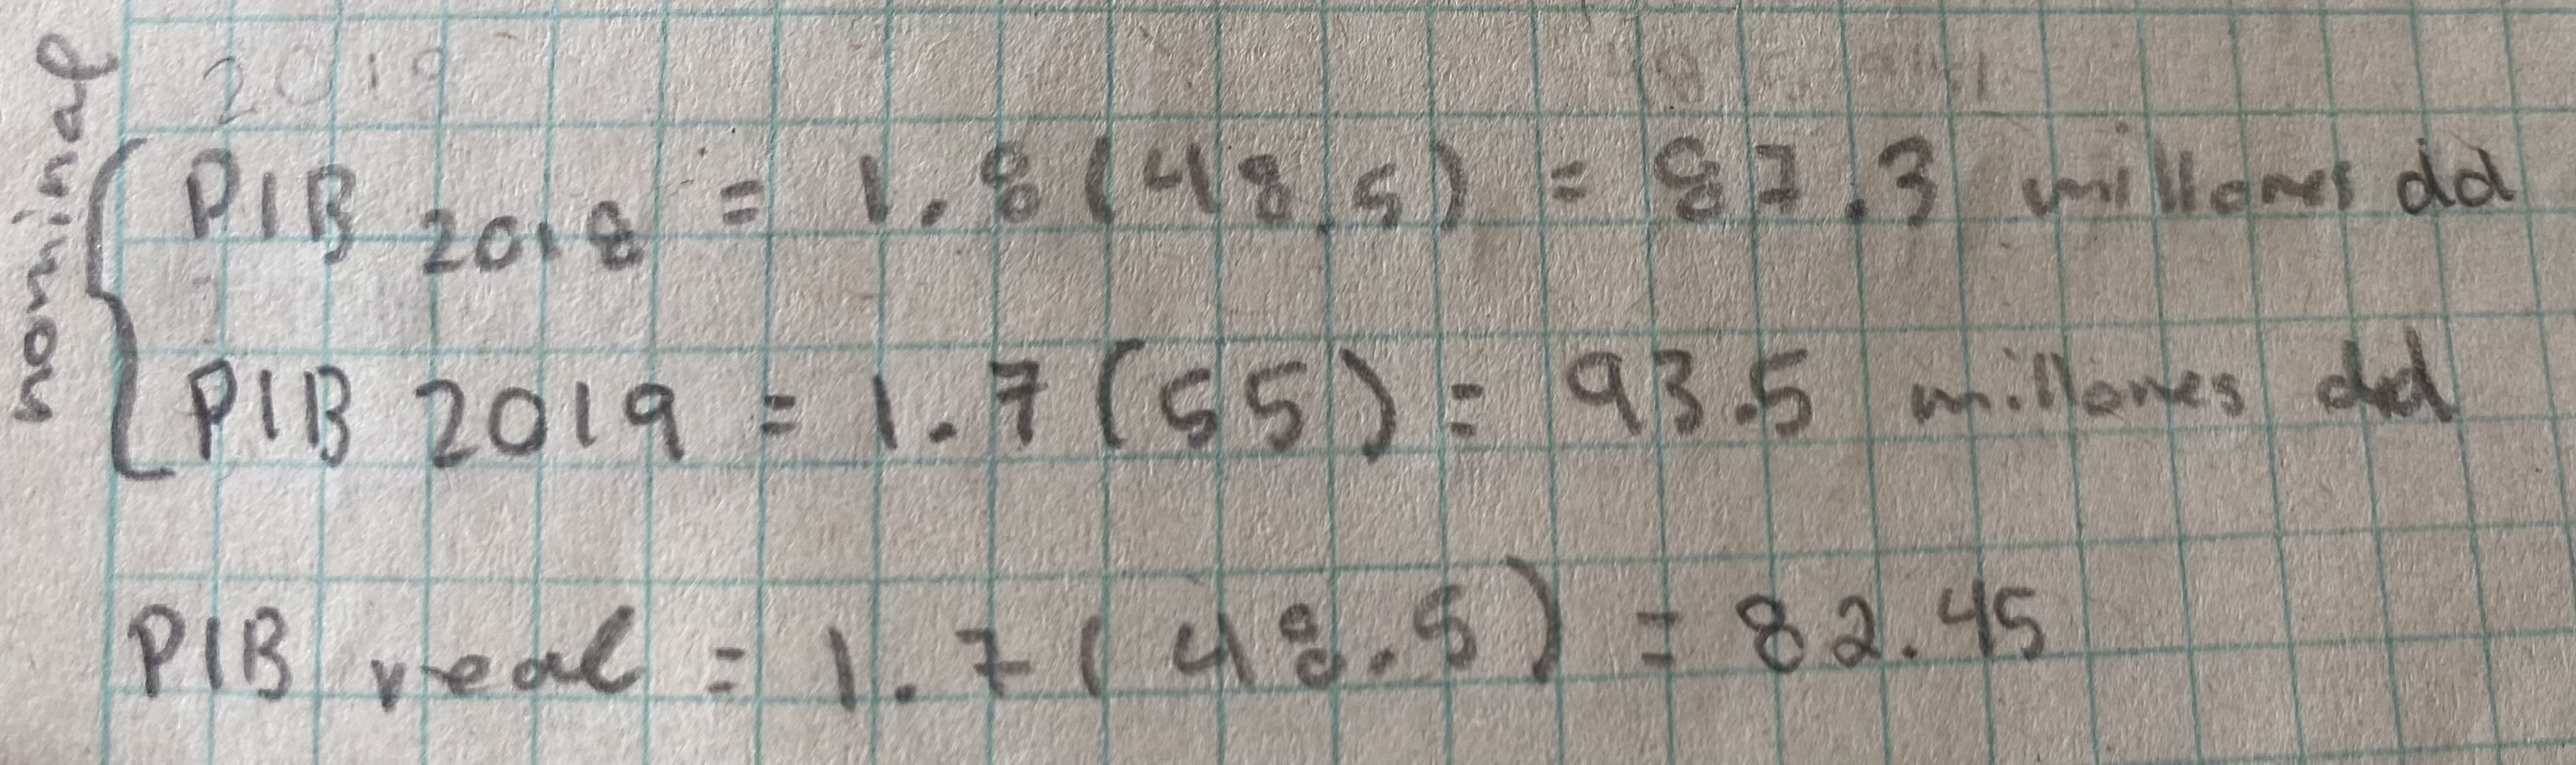 nominal
PIB 2018 = 1.8(48.5) = 87.3 millones dd
PIB 2019 = 1.7(55) = 93.5 millones dd
PIB real = 1.7(48.5) = 82.45